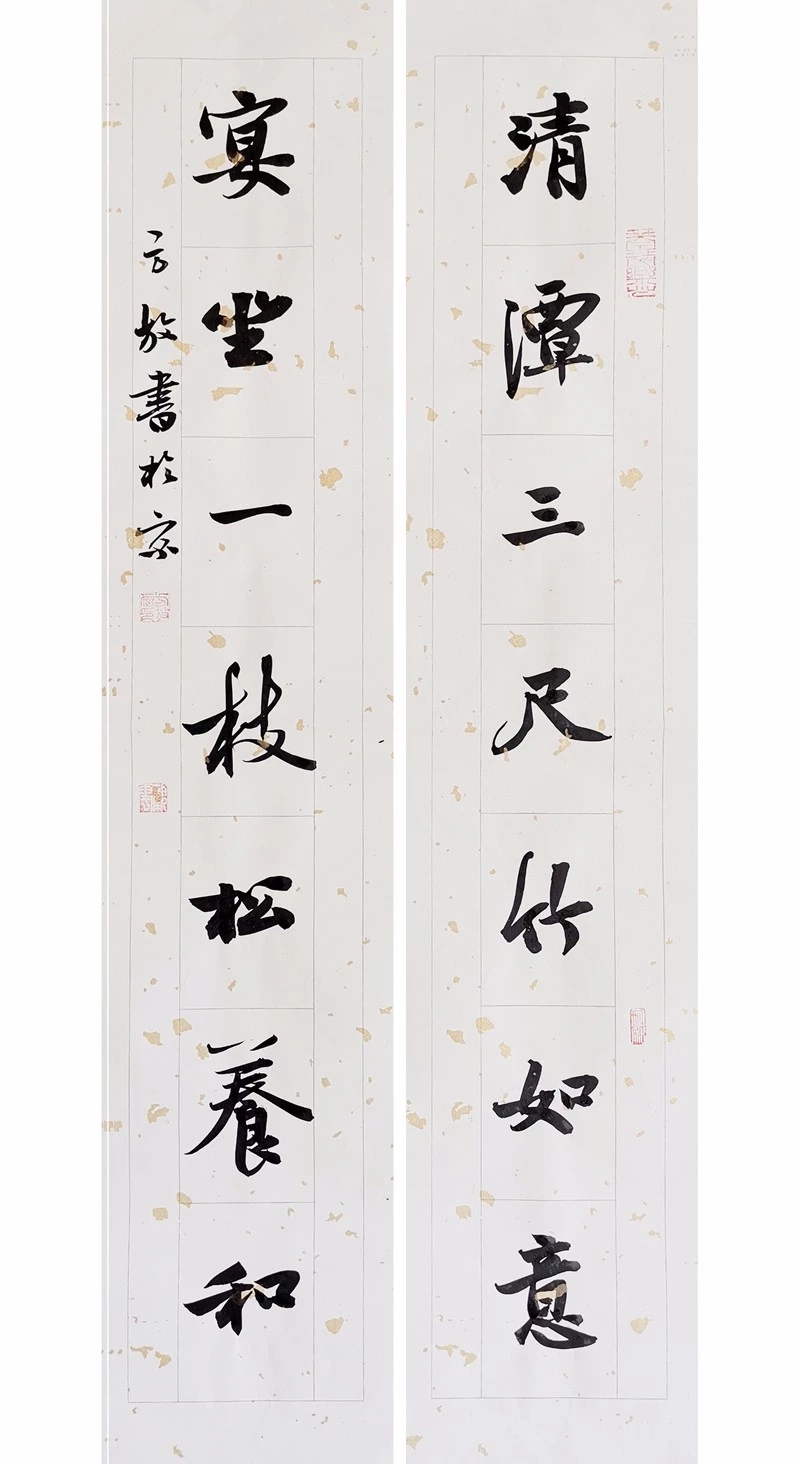 清潭三尺竹如意
宴坐一枝松養和
放書於京